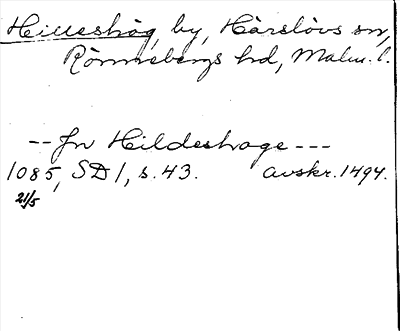 Hilleshög, by, Härslövs sn,
Rönnebergs hd, Malm. l.
-- Jn Hildeshoge ---
1085, SD 1, s. 43. avskr. 1494.
21/5